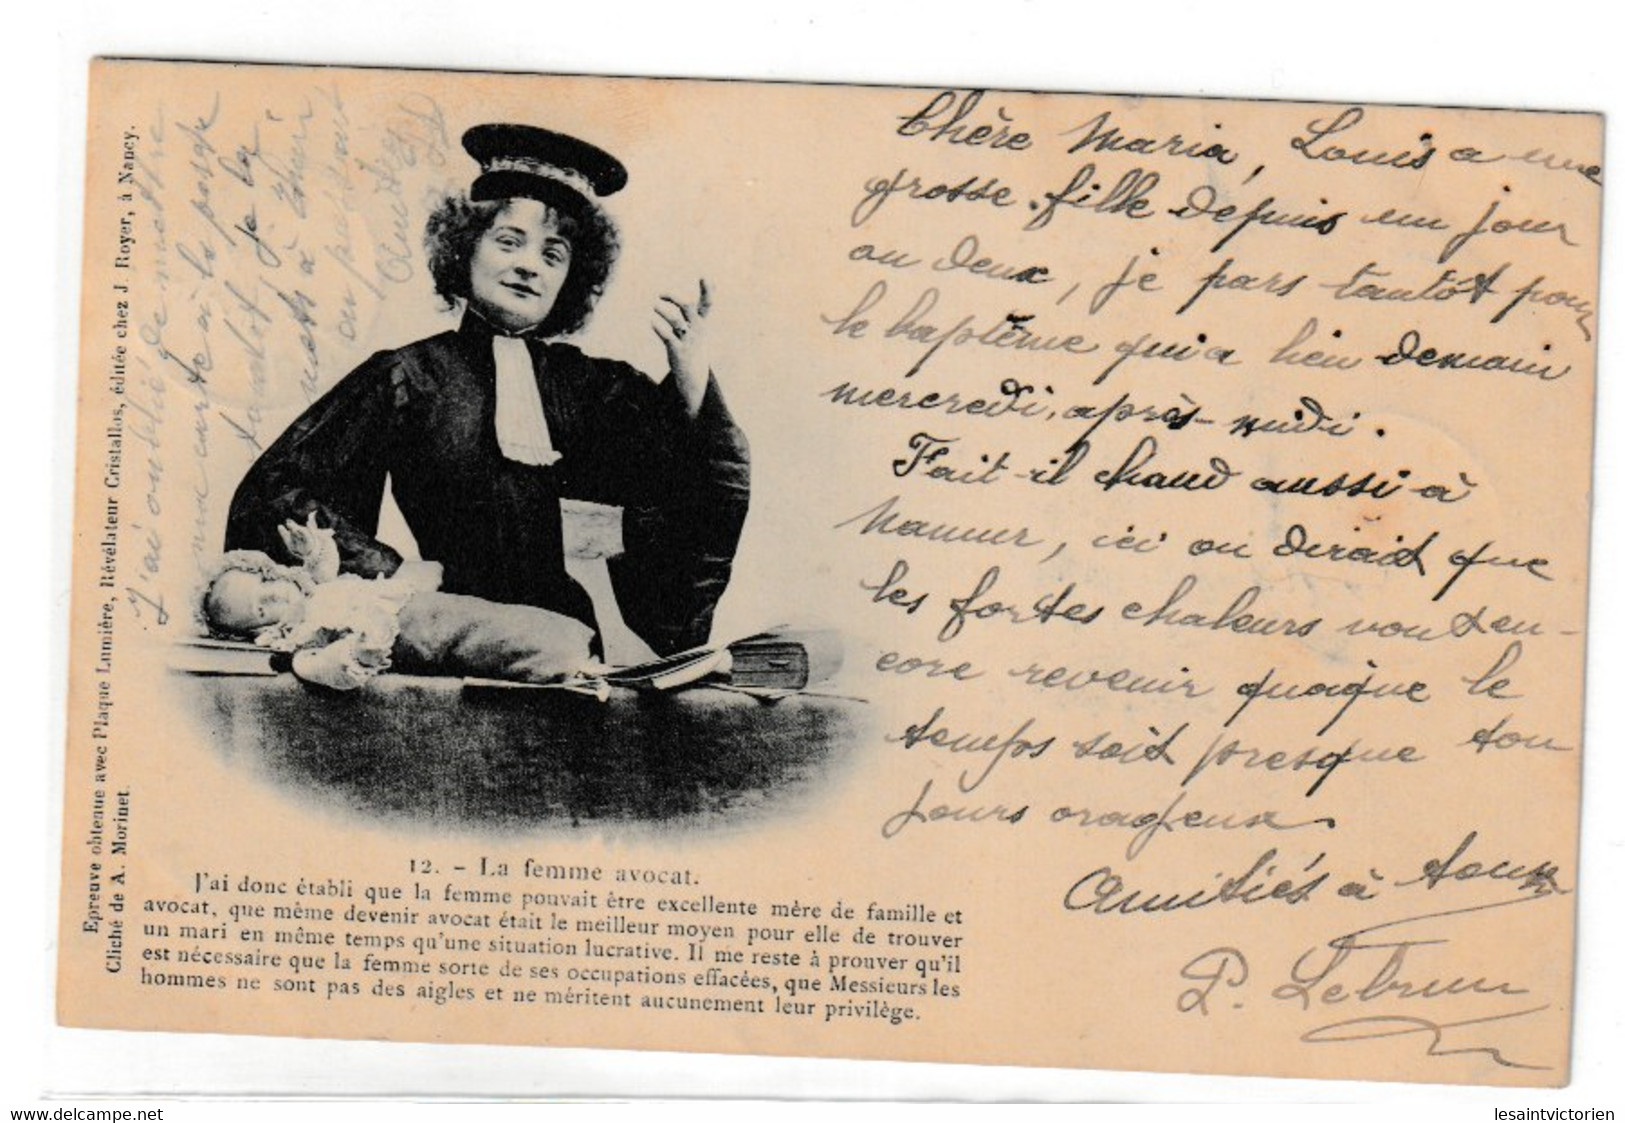 Chère Maria, Louis a une
grosse fille depuis un jour
ou deux, je pars tantôt pour
le baptême qui a lieu demain
mercredi, après-midi.
Fait-il chaud aussi à
Namur, ici on dirait que
les fortes chaleurs vont en-
core revenir quoique le
temps soit presque tou
jours orageux.
Amitiés à tous
P. Lebrun
J'ai oublié de mettre
ma carte à la poste
tantôt, je la
mets à Thuin
en passant
Amitiés
Epreuve obtenue avec Plaque Lumière, Révélateur Cristallos, éditée chez J. Royer, à Nancy.
Cliché de A. Morinet.
12. - La femme avocat.
J'ai donc établi que la femme pouvait être excellente mère de famille et
avocat, que même devenir avocat était le meilleur moyen pour elle de trouver
un mari en même temps qu'une situation lucrative. Il me reste à prouver qu'il
est nécessaire que la femme sorte de ses occupations effacées, que Messieurs les
hommes ne sont pas des aigles et ne méritent aucunement leur privilège.
www.delcampe.net
lesaintvictorien